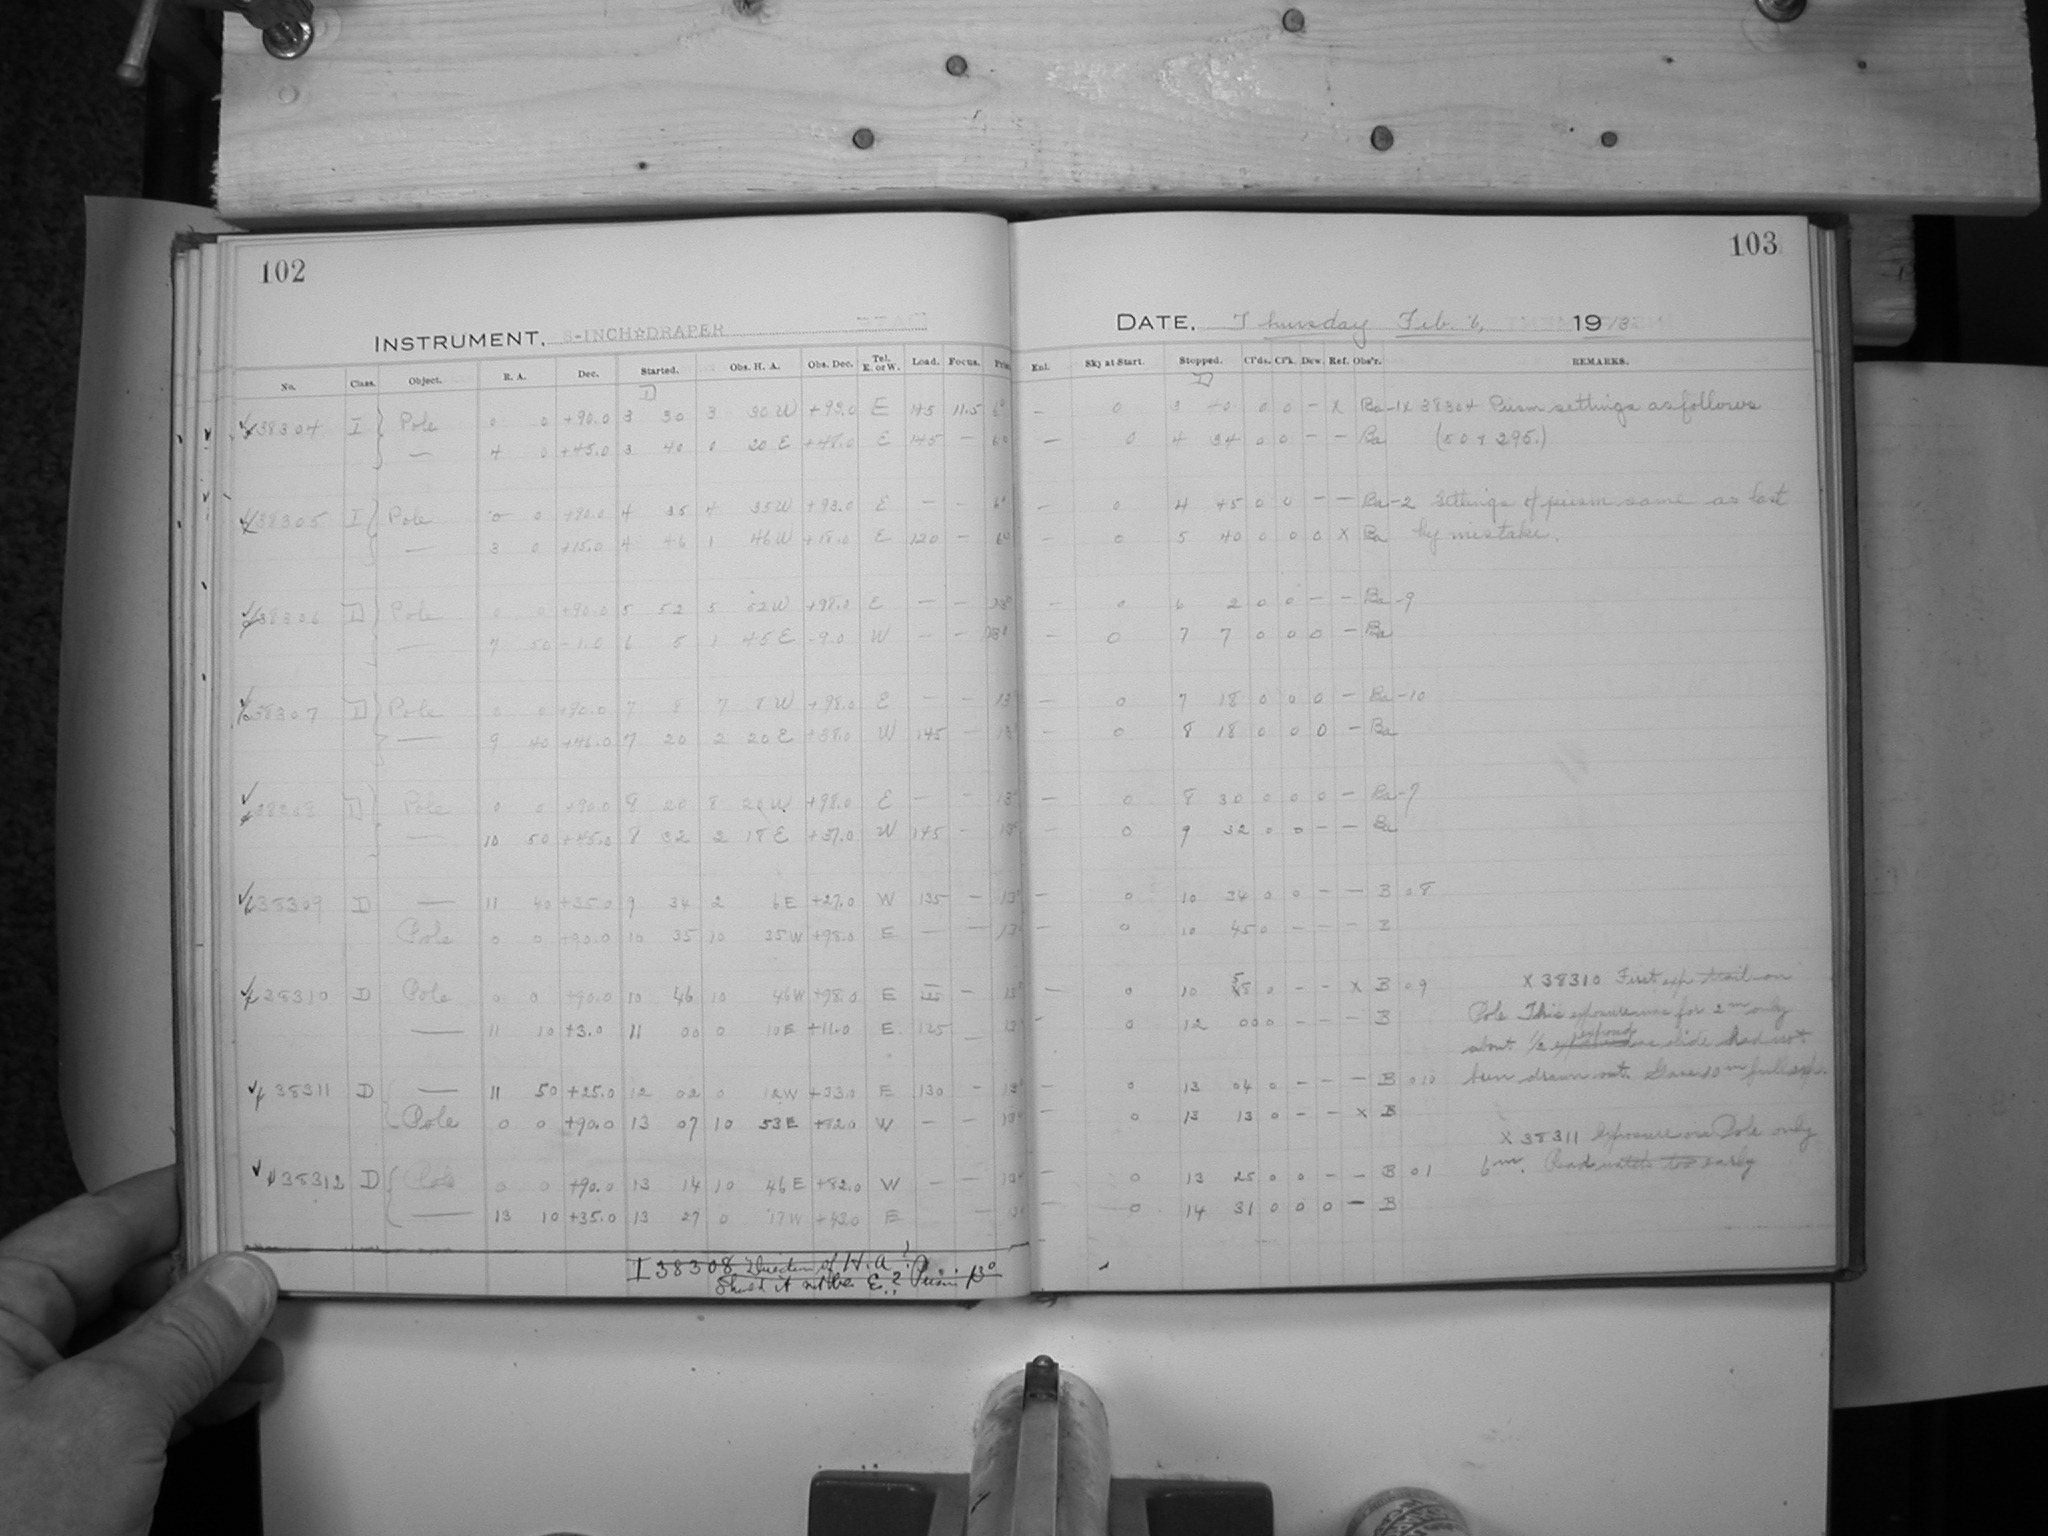 102
INSTRUMENT, 8-INCH☆DRAPER
No. Class. Object. R. A. Dec. Started. Obs. H. A. Obs. Dec. Tel. E. or W. Load. Focus.
D
38304 I Pole 0 0 +90.0 3 30 3 30 W +93.0 E 145 11.5 6°
— 4 0 +45.0 3 40 0 20 E +48.0 E 145 — 6°
38305 I Pole 0 0 +90.0 4 35 4 35 W +93.0 E — — 6°
— 3 0 +15.0 4 46 1 46 W +18.0 E 120 — 6°
38306 D Pole 0 0 +90.0 5 52 5 52 W +98.0 E — — 13°
— 7 50 -1.0 6 5 1 45 E -9.0 W — — 13°
38307 D Pole 0 0 +90.0 7 8 7 8 W +98.0 E — — 13°
— 9 40 +46.0 7 20 2 20 E +38.0 W 145 — 13°
38308 D Pole 0 0 +90.0 8 20 8 20 W +98.0 E — — 13°
— 10 50 +45.0 8 32 2 18 E +37.0 W 145 — 13°
38309 D — 11 40 +35.0 9 34 2 6 E +27.0 W 135 — 13°
Pole 0 0 +90.0 10 35 10 35 W +98.0 E — — 13°
38310 D Pole 0 0 +90.0 10 46 10 46 W +98.0 E — 13°
— 11 10 +3.0 11 00 0 10 E +11.0 E 125 — 13°
38311 D — 11 50 +25.0 12 02 0 12 W +33.0 E 130 — 13°
Pole 0 0 +90.0 13 07 10 53 E +82.0 W — — 13°
38312 D Pole 0 0 +90.0 13 14 10 46 E +82.0 W — — 13°
— 13 10 +35.0 13 27 0 17 W +43.0 E — 13°
I 38308 Direction of H. A.?
Should it not be E.? Prism 13°
103
DATE, Thursday Feb. 6, 1913
Enl. Sky at Start. Stopped. Cl'ds. Cl'k. Dew. Ref. Obs'r. REMARKS.
D
— 0 3 40 0 0 — X Ba -1 X 38304 Prism settings as follows
— 0 4 34 0 0 — — Ba (50 + 295.)
— 0 4 45 0 0 — — Ba -2 Settings of prism same as last
— 0 5 40 0 0 0 X Ba by mistake.
— 0 6 2 0 0 — — Ba -9
— 0 7 7 0 0 0 — Ba
— 0 7 18 0 0 0 — Ba -10
— 0 8 18 0 0 0 — Ba
— 0 8 30 0 0 0 — Ba -7
— 0 9 32 0 0 — — Ba
— 0 10 34 0 0 — — B 08
— 0 10 45 0 — — — B
— 0 10 0 — — X B 09 X 38310 First exp trail on
— 0 12 00 0 — — — B Pole This exposure was for 2m only
about 1/2 exposed slide had not
— 0 13 04 0 — — — B 010 been drawn out. Gave 10m full exp.
— 0 13 13 0 — — X B
X 38311 Exposure on Pole only
— 0 13 25 0 0 — — B 01 6m. Read watch too early
— 0 14 31 0 0 0 — B